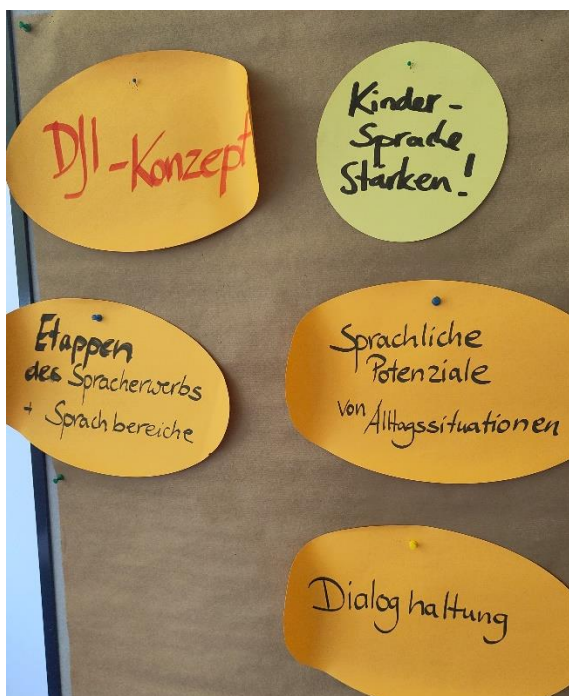 DJI-Konzept
Kinder-
Sprache
Stärken!
Etappen
des Spracherwerbs
+ Sprachbereiche
Sprachliche
Potenziale
von Alltagssituationen
Dialoghaltung